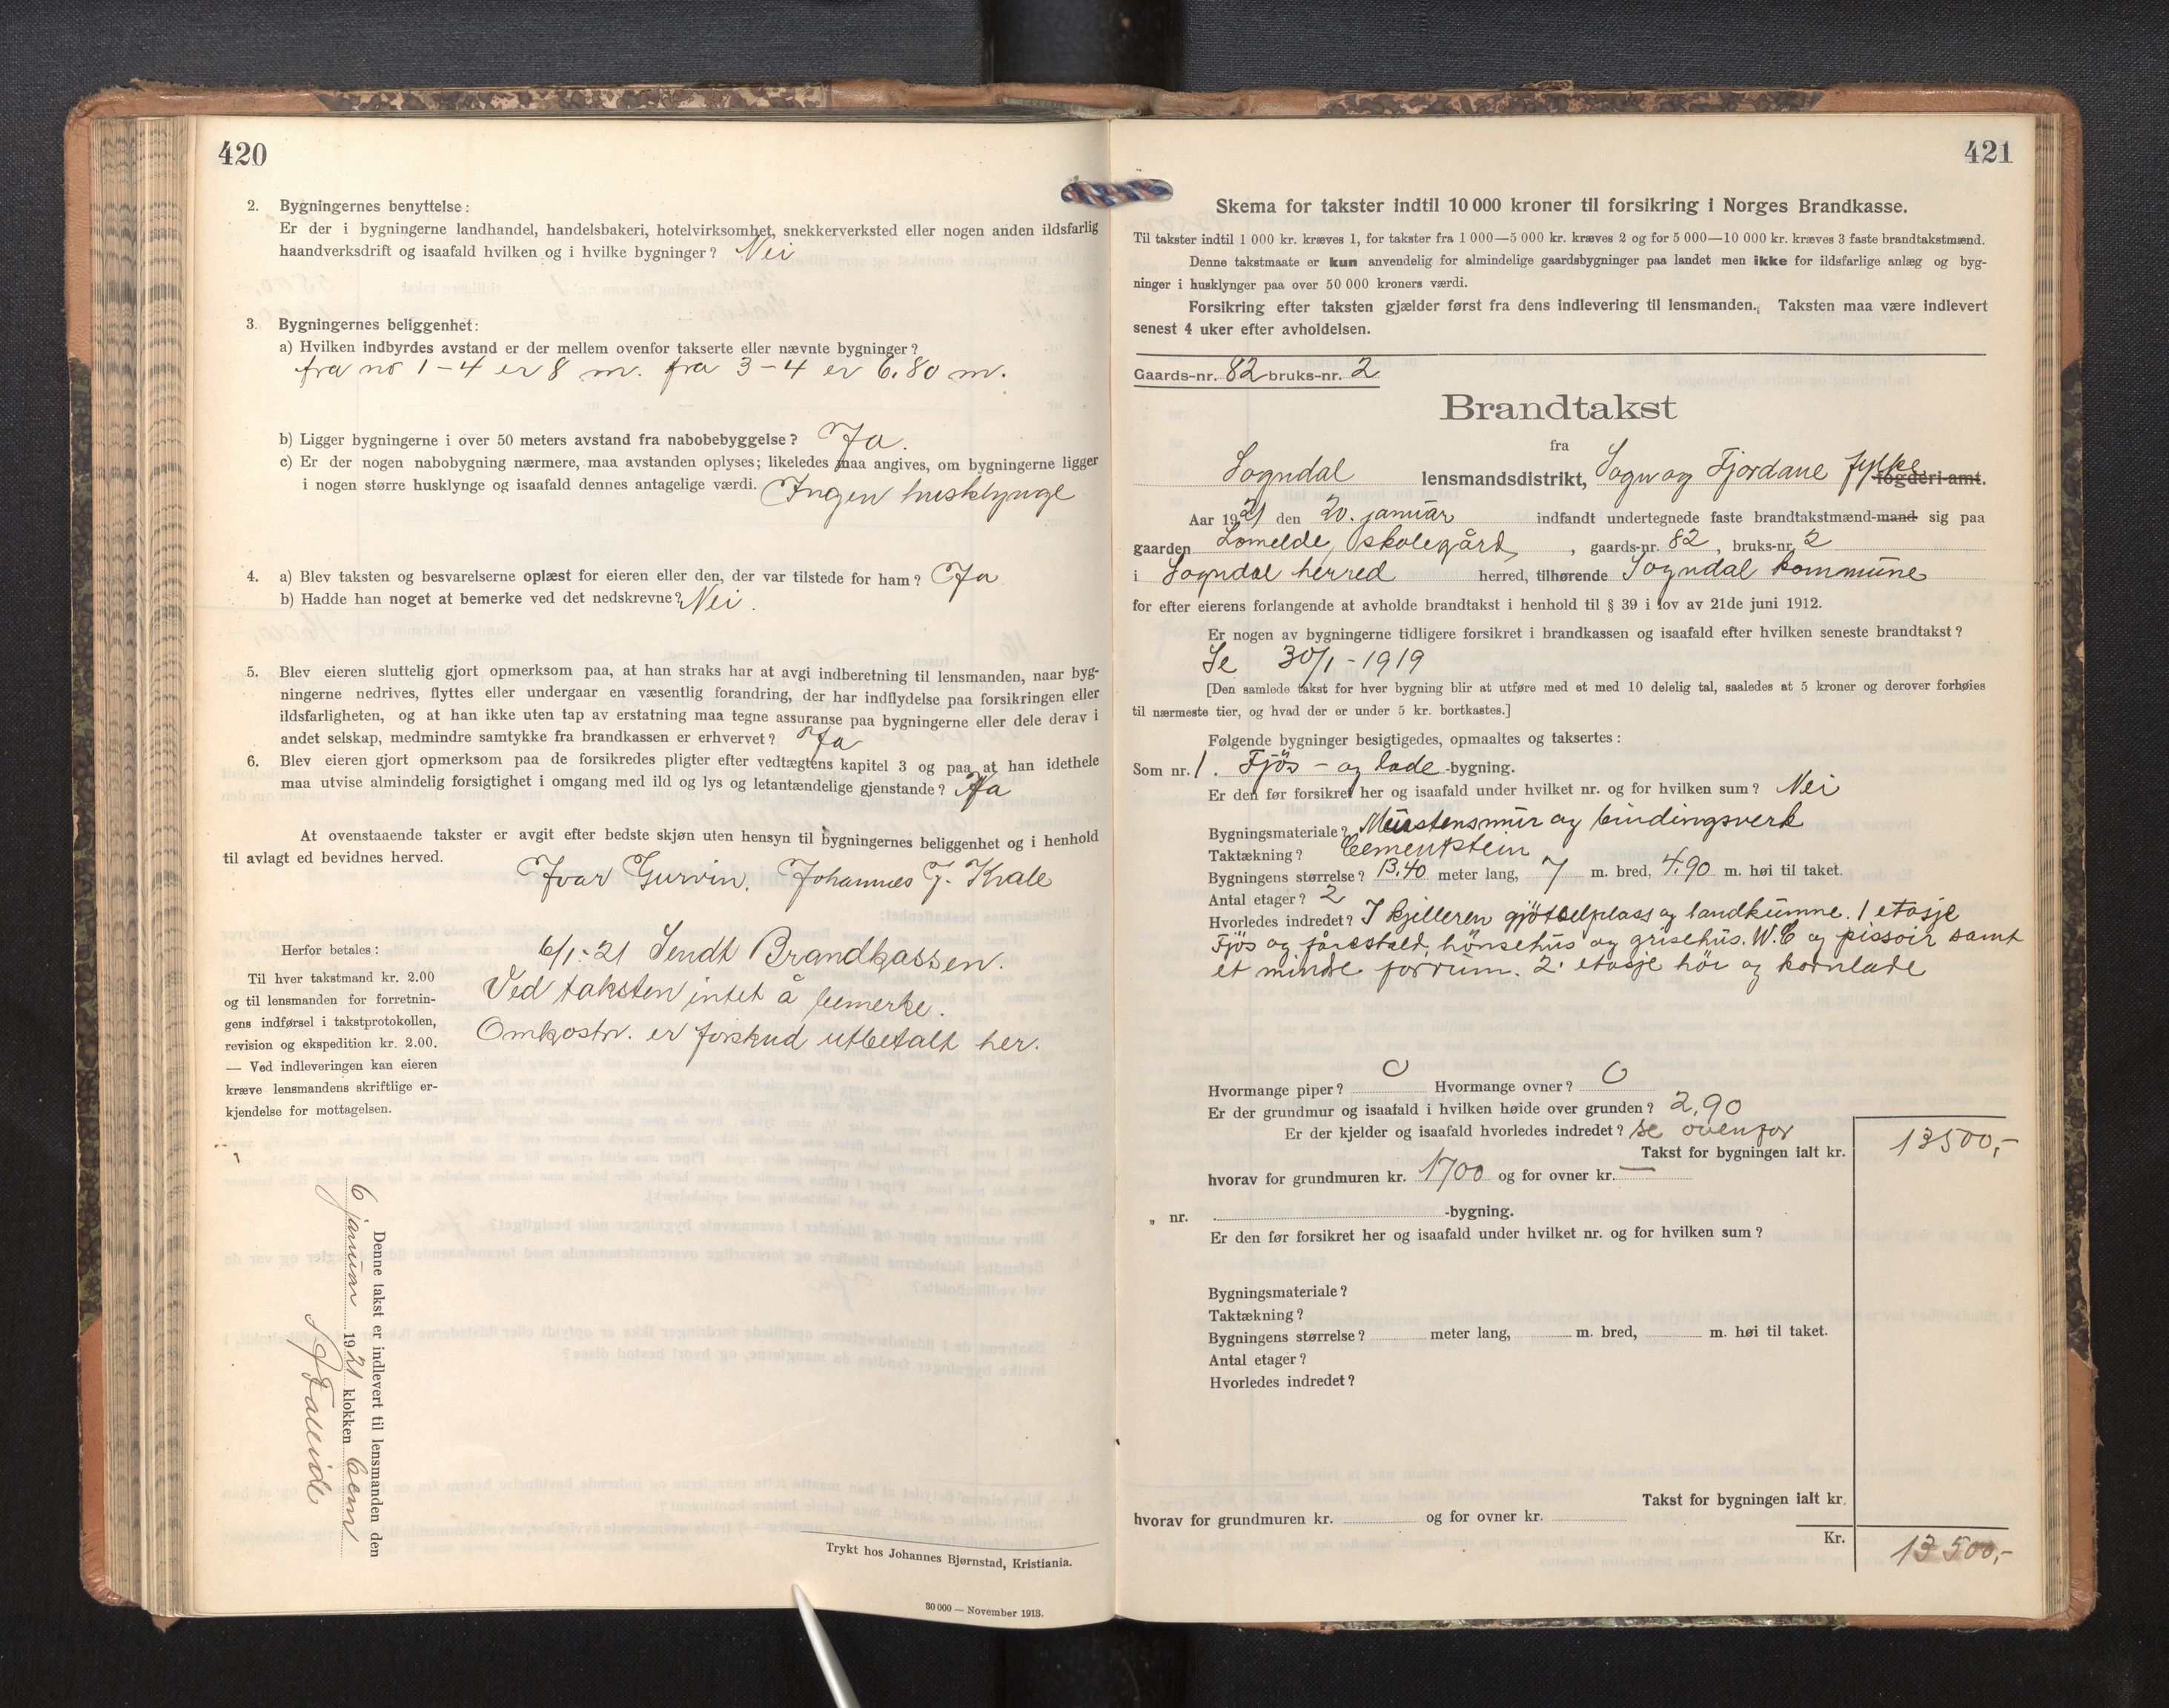 420
2. Bygningernes benyttelse:
Er der i bygningerne landhandel, handelsbakeri, hotelvirksomhet, snekkerverksted eller nogen anden ildsfarlig
haandverksdrift og isaafald hvilken og i hvilke bygninger? Nei
3. Bygningernes beliggenhet:
a) Hvilken indbyrdes avstand er der mellem ovenfor takserte eller nævnte bygninger?
fra no 1-4 er 8 m. fra 3-4 er 6.80 m.
b) Ligger bygningerne i over 50 meters avstand fra nabobebyggelse? Ja.
c) Er der nogen nabobygning nærmere, maa avstanden oplyses; likeledes maa angives, om bygningerne ligger
i nogen større husklynge og isaafald dennes antagelige værdi. Ingen husklynge
4. a) Blev taksten og besvarelserne oplæst for eieren eller den, der var tilstede for ham? Ja
b) Hadde han noget at bemerke ved det nedskrevne? Nei.
5. Blev eieren sluttelig gjort opmerksom paa, at han straks har at avgi indberetning til lensmanden, naar byg-
ningerne nedrives, flyttes eller undergaar en væsentlig forandring, der har indflydelse paa forsikringen eller
ildsfarligheten, og at han ikke uten tap av erstatning maa tegne assuranse paa bygningerne eller dele derav i
andet selskap, medmindre samtykke fra brandkassen er erhvervet? Ja
6. Blev eieren gjort opmerksom paa de forsikredes pligter efter vedtægtens kapitel 3 og paa at han idethele
maa utvise almindelig forsigtighet i omgang med ild og lys og letantændelige gjenstande? Ja
At ovenstaaende takster er avgit efter bedste skjøn uten hensyn til bygningernes beliggenhet og i henhold
til avlagt ed bevidnes herved.
Ivar Gurvin. Johannes J. Kvale
Herfor betales:
Til hver takstmand kr. 2.00
og til lensmanden for forretnin-
gens indførsel i takstprotokollen,
revision og ekspedition kr. 2.00.
— Ved indleveringen kan eieren
kræve lensmandens skriftlige er-
kjendelse for mottagelsen.
6/1-21 Sendt Brandkassen.
Ved taksten intet å bemerke.
Omkostn. er forskud utbetalt her.
Denne takst er indlevert til lensmanden den
6 januar 1921 klokken
Trykt hos Johannes Bjørnstad, Kristiania.
30 000 — November 1913.
421
Skema for takster indtil 10 000 kroner til forsikring i Norges Brandkasse.
Til takster indtil 1 000 kr. kræves 1, for takster fra 1 000—5 000 kr. kræves 2 og for 5 000—10 000 kr. kræves 3 faste brandtakstmænd.
Denne takstmaate er kun anvendelig for almindelige gaardsbygninger paa landet men ikke for ildsfarlige anlæg og byg-
ninger i husklynger paa over 50 000 kroners værdi.
Forsikring efter taksten gjælder først fra dens indlevering til lensmanden. Taksten maa være indlevert
senest 4 uker efter avholdelsen.
Gaards-nr. 82 bruks-nr. 2
Brandtakst
fra
Sogndal lensmandsdistrikt, Sogn og Fjordane fylke fogderi-amt.
Aar 1921 den 20. januar indfandt undertegnede faste brandtakstmænd-mand sig paa
gaarden Lomelde, skolegård, gaards-nr. 82, bruks-nr. 2
i Sogndal herred herred, tilhørende Sogndal kommune
for efter eierens forlangende at avholde brandtakst i henhold til § 39 i lov av 21de juni 1912.
Er nogen av bygningerne tidligere forsikret i brandkassen og isaafald efter hvilken seneste brandtakst?
Se 30/1-1919
[Den samlede takst for hver bygning blir at utføre med et med 10 delelig tal, saaledes at 5 kroner og derover forhøies
til nærmeste tier, og hvad der er under 5 kr. bortkastes.]
Følgende bygninger besigtigedes, opmaaltes og taksertes:
Som nr. 1. Fjös- og lade -bygning.
Er den før forsikret her og isaafald under hvilket nr. og for hvilken sum? Nei
Bygningsmateriale? Murstensmur og bindingsverk
Taktækning? Cementstein
Bygningens størrelse? 13.40 meter lang, 7 m. bred, 4.90 m. høi til taket.
Antal etager? 2
Hvorledes indredet? I kjelleren gjötselplass og landkumme. 1 etasje
Fjös og fårestald, hönsehus og grisehus. W.C og pissoir samt
et mindre forrum. 2. etasje höi og kornlade
Hvormange piper? 0 Hvormange ovner? 0
Er der grundmur og isaafald i hvilken høide over grunden? 2,90
Er der kjelder og isaafald hvorledes indredet? se ovenfor
Takst for bygningen ialt kr. 13500,-
hvorav for grundmuren kr. 1700 og for ovner kr. —
„ nr. -bygning.
Er den før forsikret her og isaafald under hvilket nr. og for hvilken sum?
Bygningsmateriale?
Taktækning?
Bygningens størrelse? meter lang, m. bred, m. høi til taket.
Antal etager?
Hvorledes indredet?
Takst for bygningen ialt kr.
hvorav for grundmuren kr. og for ovner kr.
Kr. 13500,-